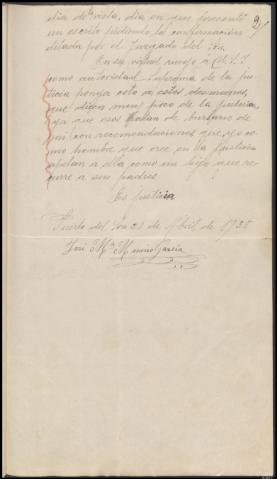 9)
día de vista, día en que presenté
un escrito pidiendo la confirmación
dictada por el Juzgado del Pto.
En su virtud ruego a V.I.
como autoridad de la jus-
ticia ponga coto a estos desmanes,
que dicen muy poco de la justicia
ya que esos tratan de burlarse de
mi con recomendaciones que yo co-
mo hombre que cree en la Justicia
a ella como un hijo que re-
curre a sus padres
Es justicia
Puerto del 21 de Abril de 1938
José Mª Muñoz García